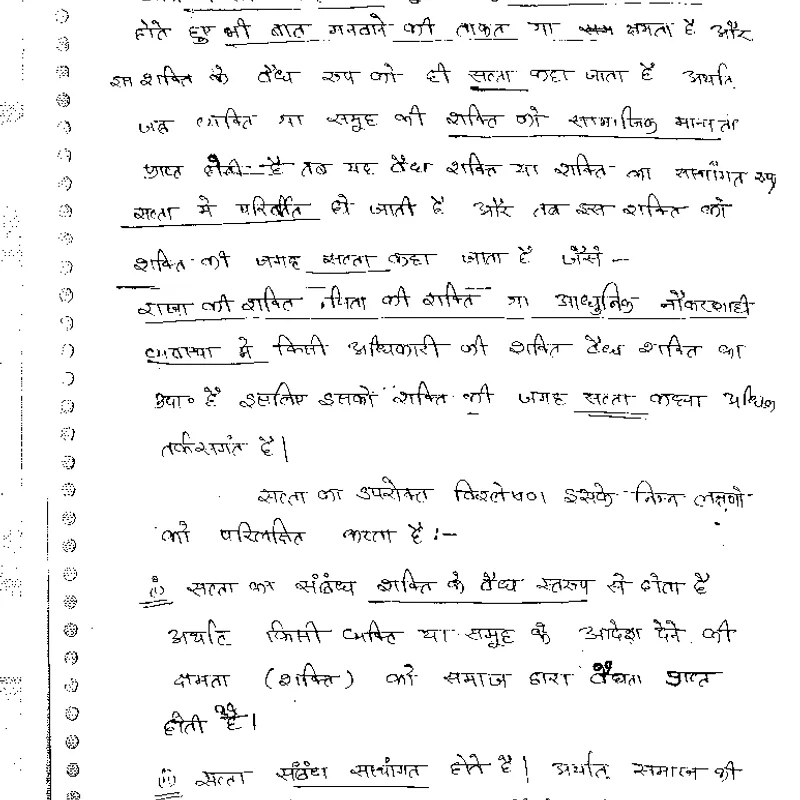 होते हुए भी बात मनवाने की ताकत या क्षमता है और
इस शक्ति के वैध रूप को ही सत्ता कहा जाता है अर्थात्
जब व्यक्ति या समूह की शक्ति को सामाजिक मान्यता
प्राप्त होती है तब यह वैध शक्ति या शक्ति का संस्थागत रूप
सत्ता में परिवर्तित हो जाती है और तब इस शक्ति को
शक्ति की जगह सत्ता कहा जाता है जैसे –
राजा की शक्ति, पिता की शक्ति या आधुनिक नौकरशाही
व्यवस्था में किसी अधिकारी की शक्ति वैध शक्ति का
उदा॰ है इसलिए इसको शक्ति की जगह सत्ता कहना अधिक
तर्कसगंत है।
सत्ता का उपरोक्त विश्लेषण इसके निम्न लक्षणो
को परिलक्षित करता है :–
(i) सत्ता का संबंध शक्ति के वैध स्वरूप से होता है
अर्थात् किसी व्यक्ति या समूह के आदेश देने की
क्षमता (शक्ति) को समाज द्वारा वैधता प्राप्त
होती है।
(ii) सत्ता संबंध संस्थागत होते है। अर्थात् समाज की